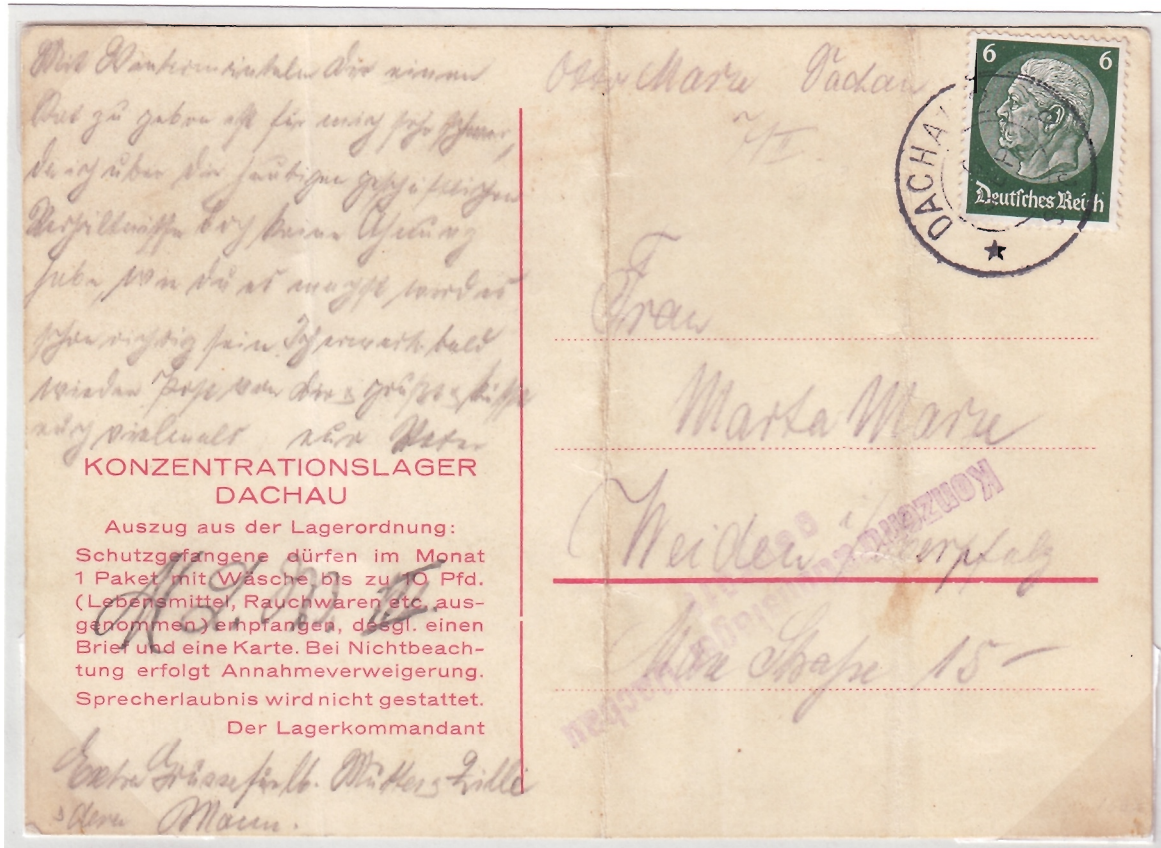 Mit Dir einen
Rat zu geben ist für mich sehr schwer,
da ich über die heutigen geschäftlichen
Verhältnisse doch keine Ahnung
habe, wie du es machst wird es
schon richtig sein. Ich erwarte bald
wieder Post von Dir & grüße & küsse
euch vielmals euer Vater
KONZENTRATIONSLAGER
DACHAU
Auszug aus der Lagerordnung:
Schutzgefangene dürfen im Monat
1 Paket mit Wäsche bis zu 10 Pfd.
(Lebensmittel, Rauchwaren etc. aus-
genommen) empfangen, desgl. einen
Brief und eine Karte. Bei Nichtbeach-
tung erfolgt Annahmeverweigerung.
Sprecherlaubnis wird nicht gestattet.
Der Lagerkommandant
Extra Grüsse für lb. Mutter &
& deren Mann.
Otto Marx Dachau
7/II.
6 6
Deutsches Reich
DACHAU
Frau
Marta Marx
Weiden Oberpfalz
Straße 15
Konzentrationslager Dachau